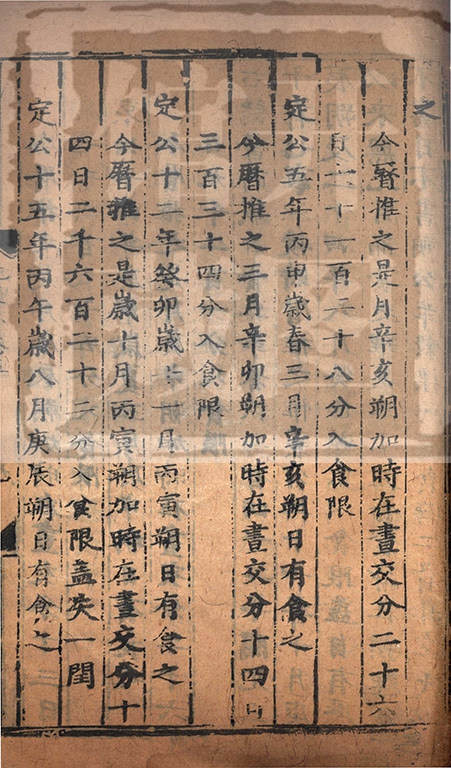 之
今曆推之是月辛亥朔加時在晝交分二十六
日七千一百二十八分入食限
定公五年丙申歲春三月辛亥朔日有食之
今曆推之三月辛卯朔加時在晝交分十四日
三百三十四分入食限
定公十二年癸卯歲十一月丙寅朔日有食之
今曆推之是歲十月丙寅朔加時在晝交分十
四日二千六百二十二分入食限蓋失一閏
定公十五年丙午歲八月庚辰朔日有食之